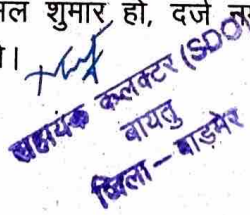 ल शुमार हो, दर्ज
।
सहायक कलक्टर (SDO)
बायतु
जिला - बाड़मेर